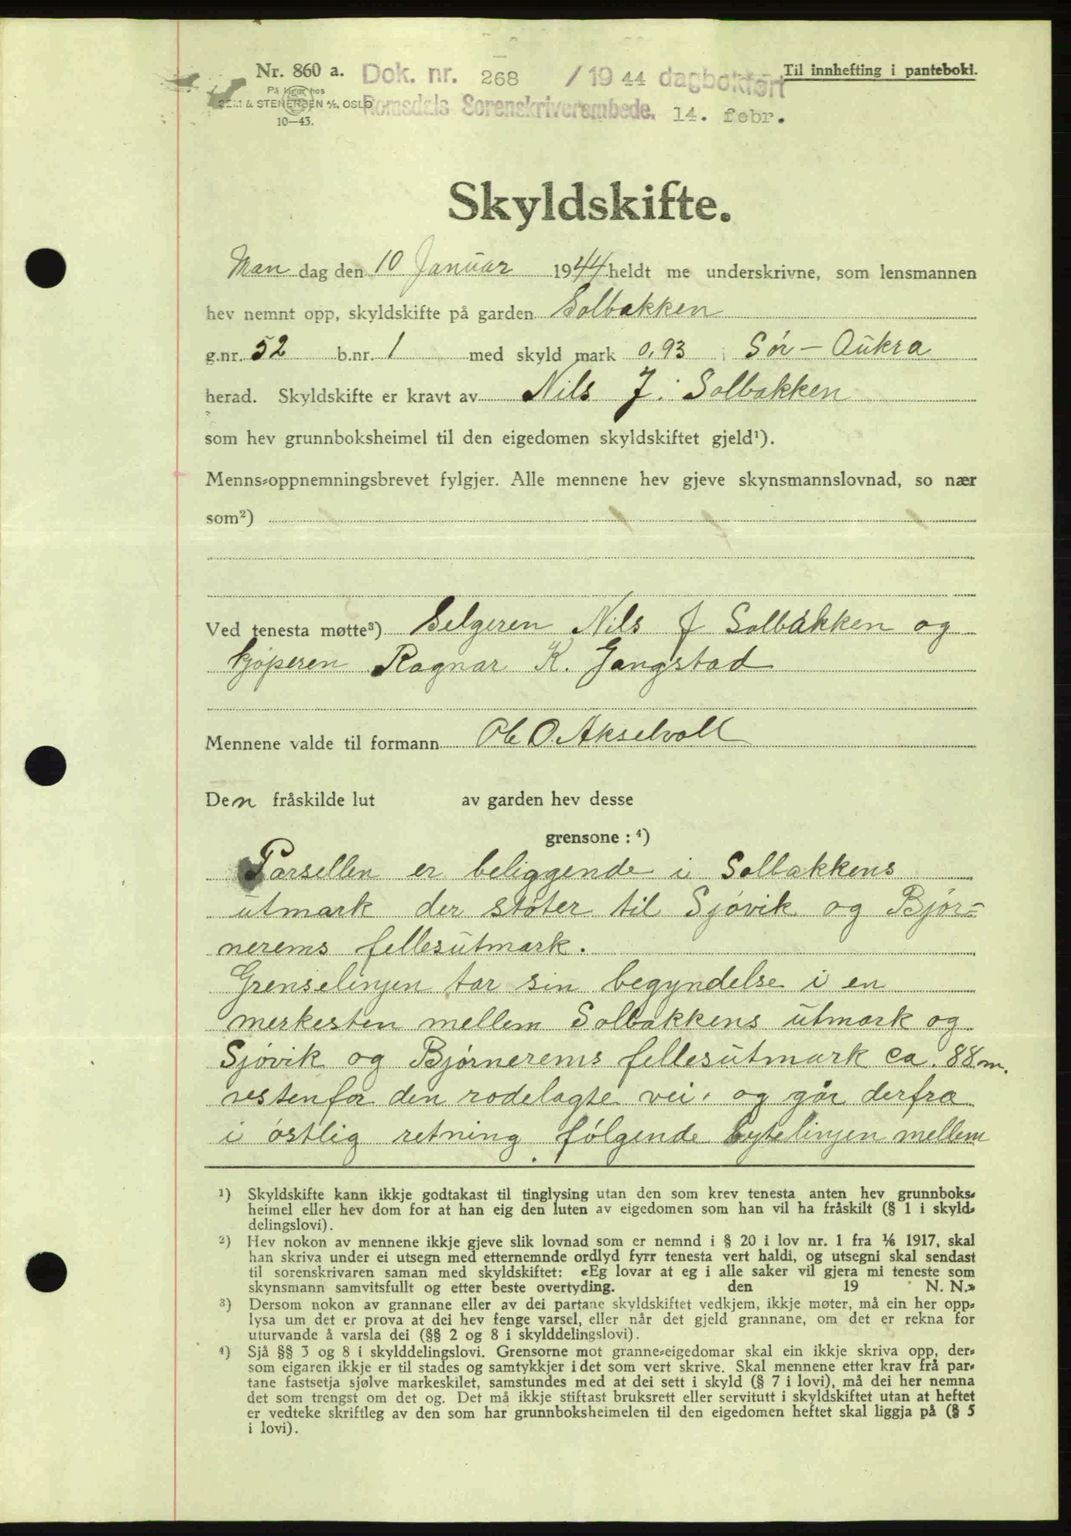 Nr. 860 a.
Dok. nr. 268 / 1944 dagbokført
Til innhefting i pantebok.
På lager hos
SEM & STENERSEN A/S, OSLO
Romsdals Sorenskriverembede. 14. febr.
10—43.
Skyldskifte.
Man dag den 10 Januar 1944 heldt me underskrivne, som lensmannen
hev nemnt opp, skyldskifte på garden Solbakken
g.nr. 52 b.nr. 1 med skyld mark 0,93 i Sør-Aukra
herad. Skyldskifte er kravt av Nils J. Solbakken
som hev grunnboksheimel til den eigedomen skyldskiftet gjeld¹).
Menns-oppnemningsbrevet fylgjer. Alle mennene hev gjeve skynsmannslovnad, so nær
som²)
Ved tenesta møtte³) Selgeren Nils J Solbakken og
kjøperen Ragnar K. Gangstad
Mennene valde til formann Ole O. Akselvoll
Den fråskilde lut av garden hev desse
grensone : ⁴)
Parsellen er beliggende i Solbakkens
utmark der støter til Sjøvik og Bjør-
nerems fellesutmark.
Grenselinjen tar sin begyndelse i en
merkesten mellem Solbakkens utmark og
Sjøvik og Bjørnerems fellesutmark ca. 88 m.
vestenfor den rodelagte vei, og går derfra
i østlig retning følgende bytelinjen mellem
¹) Skyldskifte kann ikkje godtakast til tinglysing utan den som krev tenesta anten hev grunnboks-
heimel eller hev dom for at han eig den luten av eigedomen som han vil ha fråskilt (§ 1 i skyld-
delingslovi).
²) Hev nokon av mennene ikkje gjeve slik lovnad som er nemnd i § 20 i lov nr. 1 fra 1/6 1917, skal
han skriva under ei utsegn med etternemnde ordlyd fyrr tenesta vert haldi, og utsegni skal sendast
til sorenskrivaren saman med skyldskiftet: «Eg lovar at eg i alle saker vil gjera mi teneste som
skynsmann samvitsfullt og etter beste overtyding. den 19 N. N.»
³) Dersom nokon av grannane eller av dei partane skyldskiftet vedkjem, ikkje møter, må ein her opp-
lysa um det er prova at dei hev fenge varsel, eller når det gjeld grannane, om det er rekna for
uturvande å varsla dei (§§ 2 og 8 i skylddelingslovi).
⁴) Sjå §§ 3 og 8 i skylddelingslovi. Grensorne mot granne-eigedomar skal ein ikkje skriva opp, der-
som eigaren ikkje er til stades og samtykkjer i det som vert skrive. Skal mennene etter krav frå par-
tane fastsetja sjølve markeskilet, samstundes med at dei sett i skyld (§ 7 i lovi), må dei her nemna
det som trengst om det og. Det må ikkje stiftast bruksrett eller servitutt i skyldskiftet utan at heftet
er vedteke skriftleg av den som har grunnboksheimelen til den eigedomen heftet skal liggja på (§ 5
i lovi).